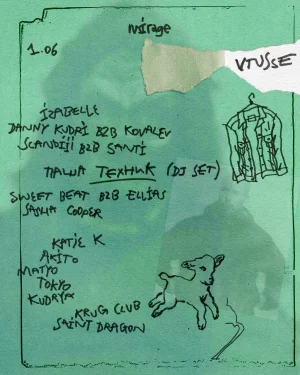 mirage
1.06
VTUSSE
IZABELLE
DANNY KUDRI B2B KOVALEV
SCANDIJI B2B SANTI
ПАША ТЕХНИК (DJ SET)
SWEET BEAT B2B ELLIAS
SASHA COOPER
KATIE K
AKITO
MATYO
TOKYO
KUDRYA
KRUG CLUB
SAINT DRAGON